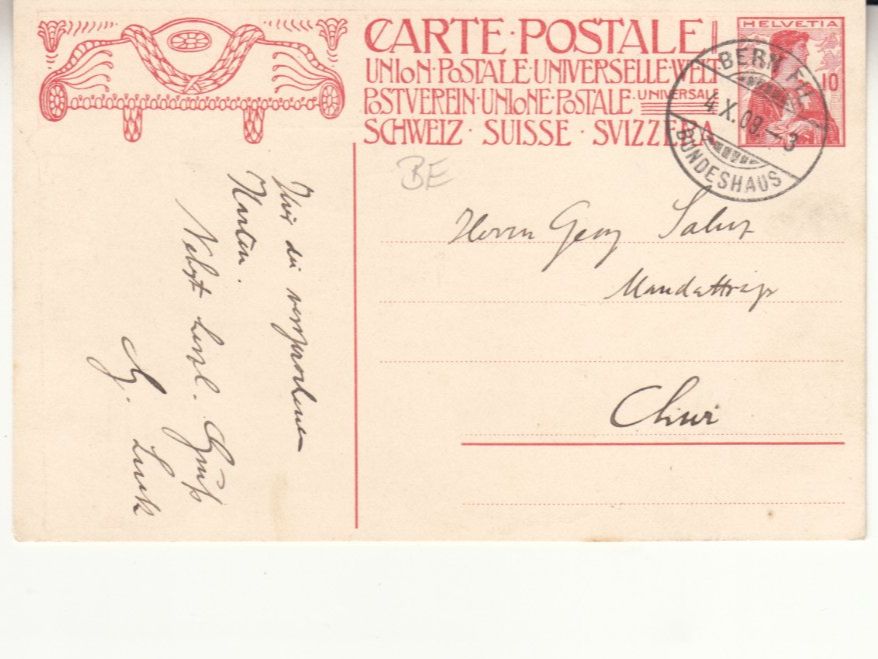 CARTE·POSTALE
UNION·POSTALE·UNIVERSELLE·WELT
POSTVEREIN·UNIONE·POSTALE UNIVERSALE
SCHWEIZ · SUISSE · SVIZZERA
HELVETIA
10
BERN
4.X.09.–3
BUNDESHAUS
BE
Herrn Georg
Chur
die versprochenen
Karten.
Nebst herzl. Gruß